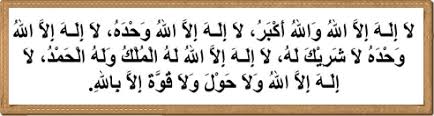 لاَ إِلَهَ إِلاَّ اللهُ وَاللهُ أَكْبَرُ، لاَ إِلَهَ إِلاَّ اللهُ وَحْدَهُ، لاَ إِلَهَ إِلاَّ اللهُ
وَحْدَهُ لاَ شَرِيْكَ لَهُ، لاَ إِلَهَ إِلاَّ اللهُ لَهُ الْمُلْكُ وَلَهُ الْحَمْدُ، لاَ
إِلَهَ إِلاَّ اللهُ وَلاَ حَوْلَ وَلاَ قُوَّةَ إِلاَّ بِاللهِ.